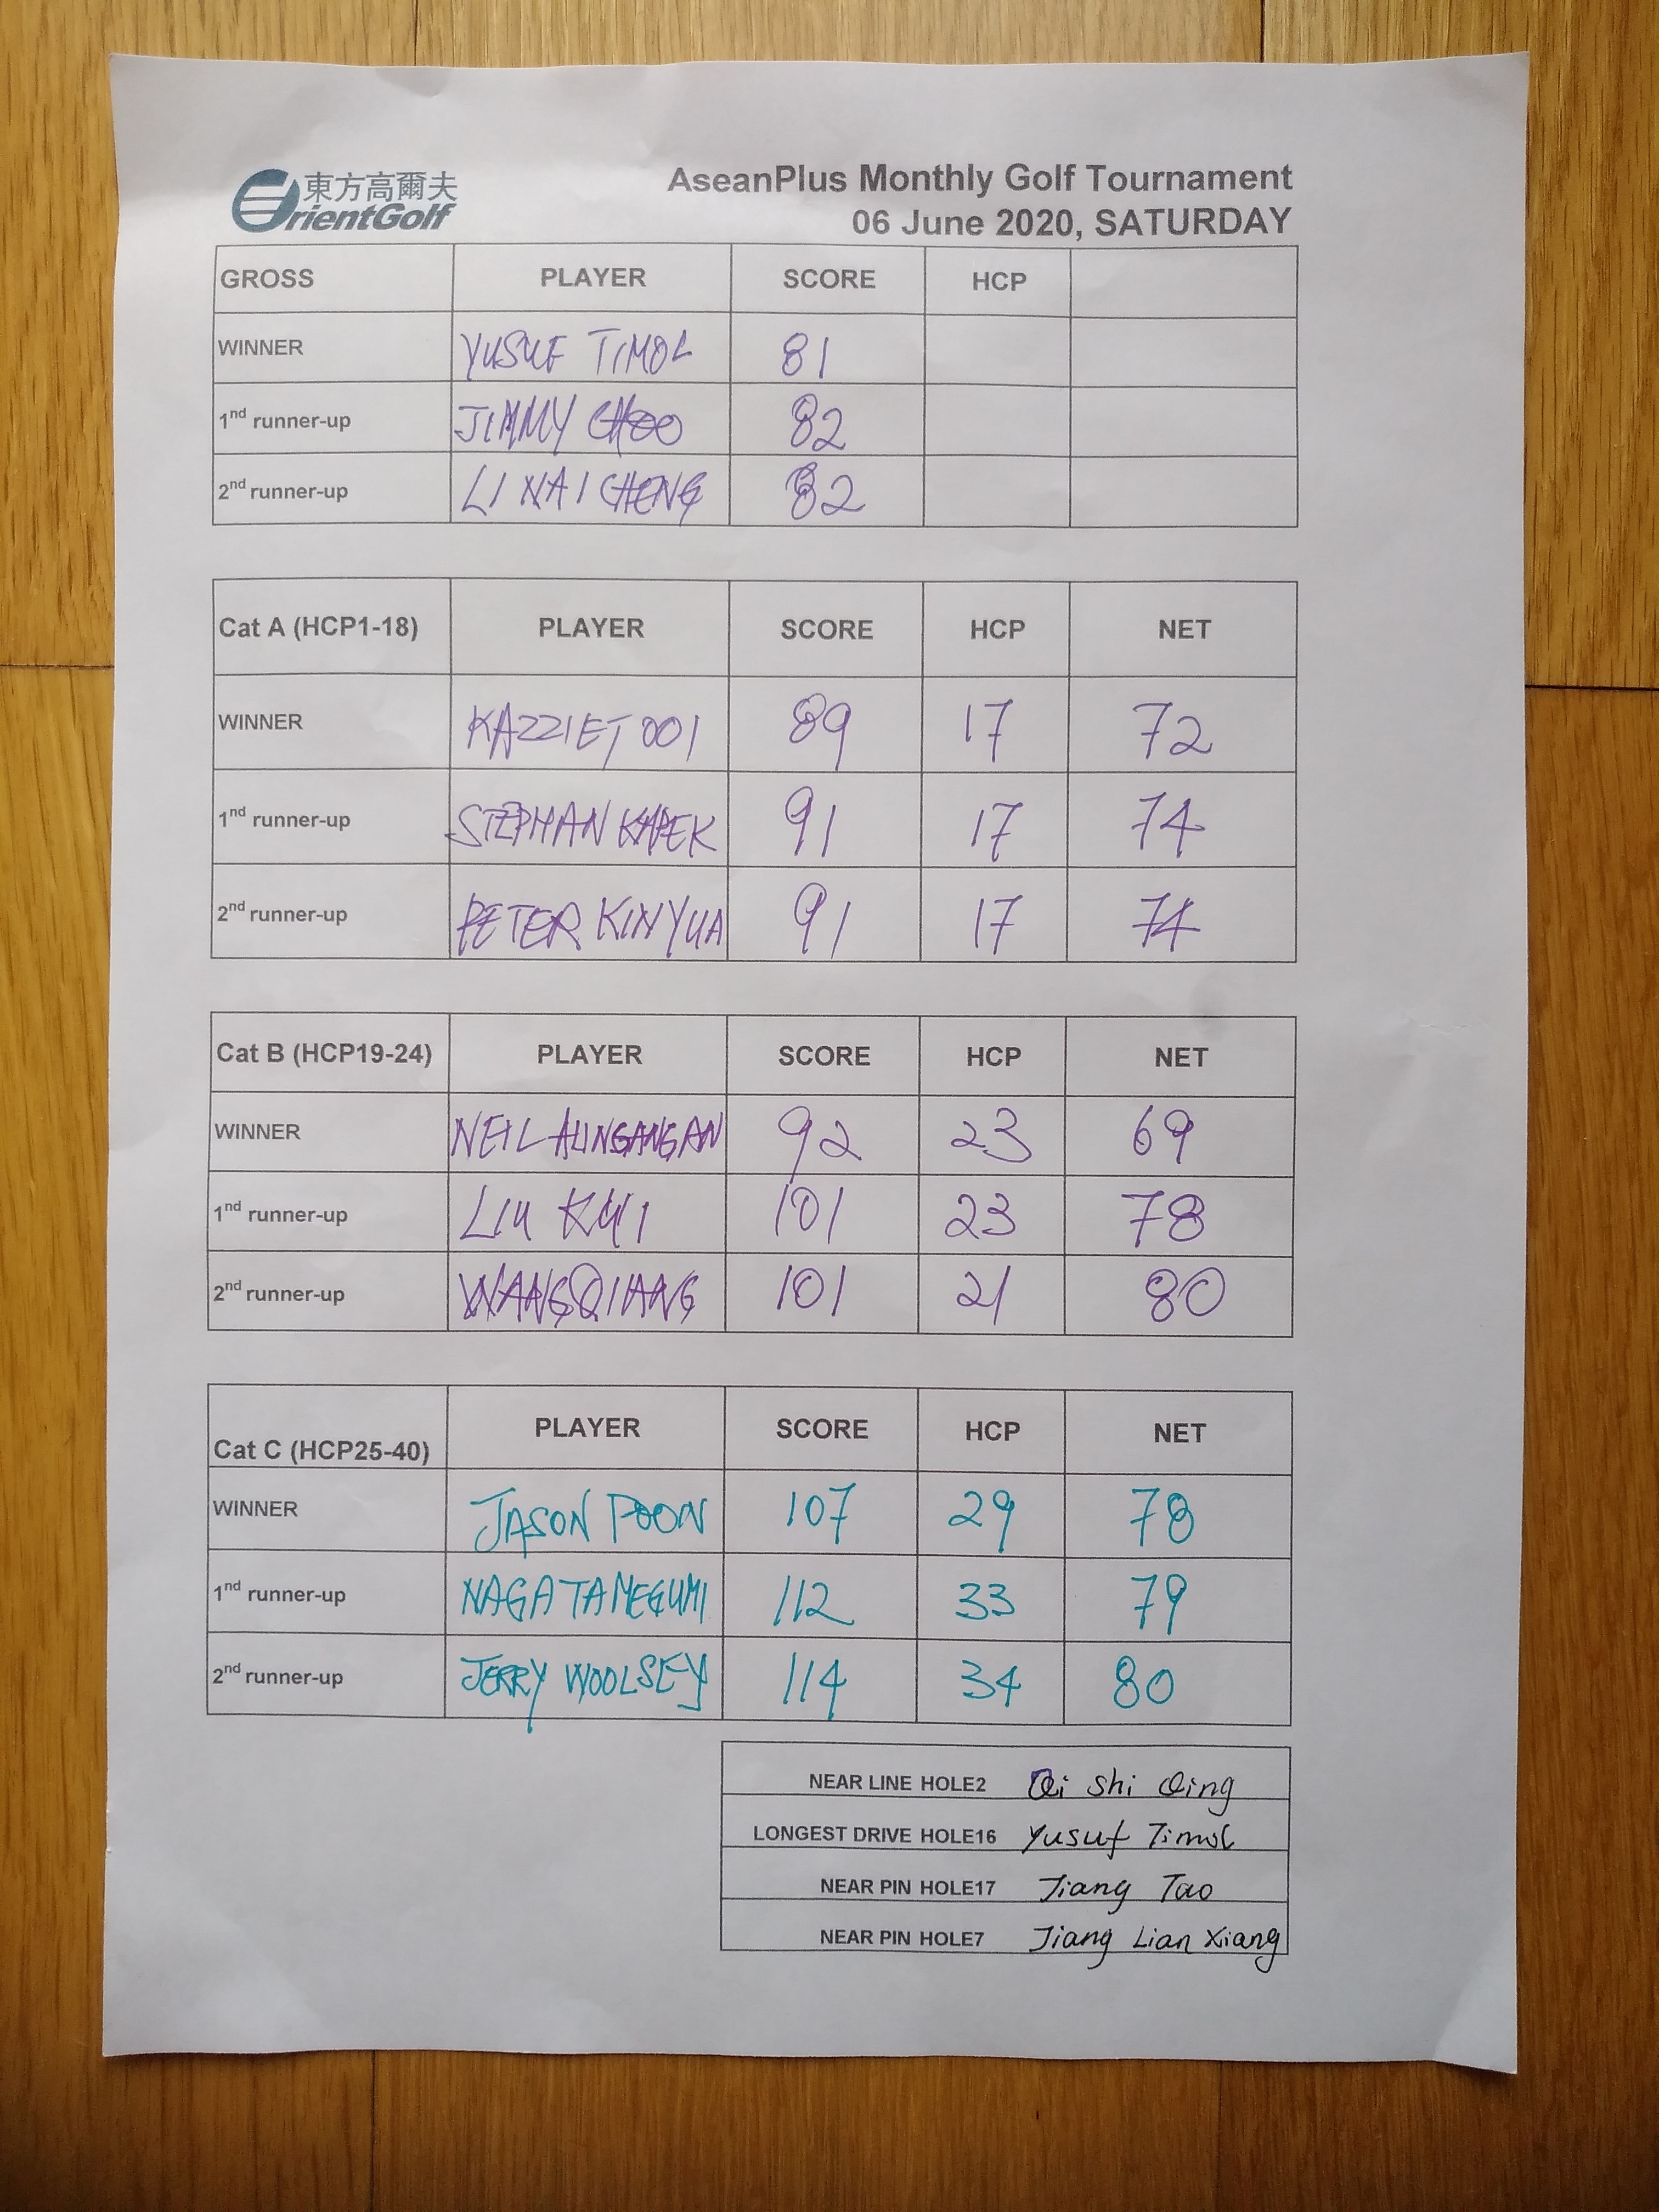 東方高爾夫
OrientGolf
AseanPlus Monthly Golf Tournament
06 June 2020, SATURDAY
GROSS PLAYER SCORE HCP
WINNER YUSUF TIMOL 81
1nd runner-up JIMMY CHOO 82
2nd runner-up LI NAI CHENG 82
Cat A (HCP1-18) PLAYER SCORE HCP NET
WINNER 89 17 72
1nd runner-up STEPHAN KAPEK 91 17 74
2nd runner-up PETER KINYUA 91 17 74
Cat B (HCP19-24) PLAYER SCORE HCP NET
WINNER NEIL AUNGANGAN 92 23 69
1nd runner-up LIU KUI 101 23 78
2nd runner-up WANG QIANG 101 21 80
Cat C (HCP25-40) PLAYER SCORE HCP NET
WINNER JASON POON 107 29 78
1nd runner-up NAGATA MEGUMI 112 33 79
2nd runner-up JERRY WOOLSEY 114 34 80
NEAR LINE HOLE2 Qi Shi Qing
LONGEST DRIVE HOLE16 Yusuf Timol
NEAR PIN HOLE17 Jiang Tao
NEAR PIN HOLE7 Jiang Lian Xiang